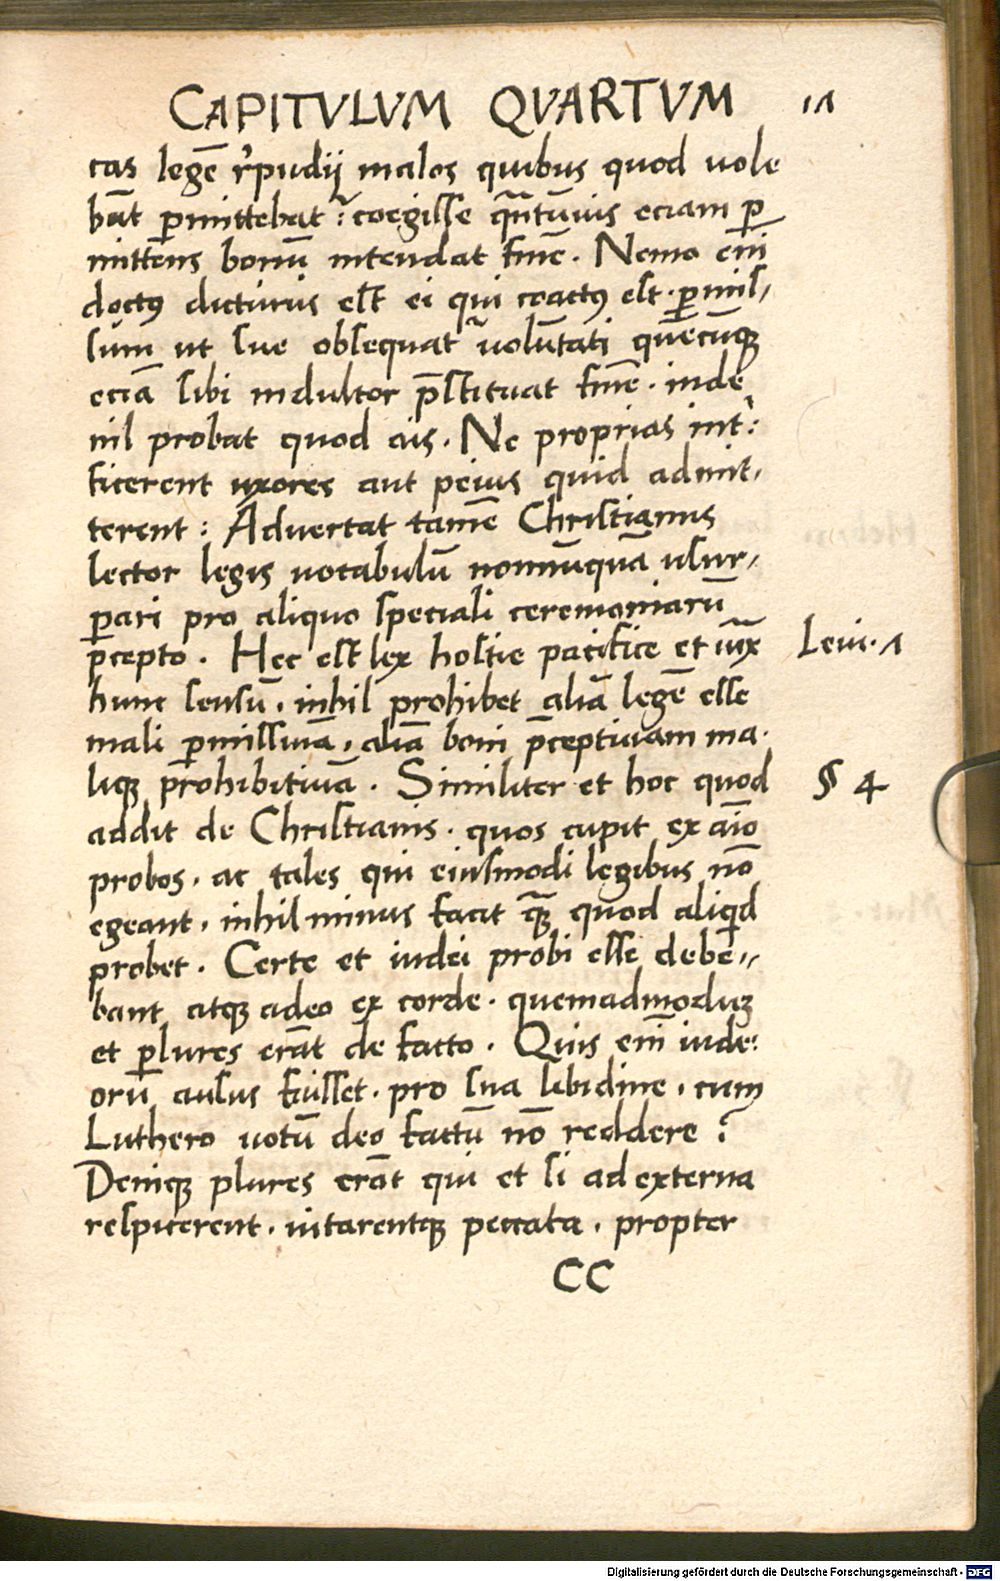 CAPITULUM QUARTUM
cas legē r̓pudij malos quibus quod uole
bāt ꝑmittebat: coegisse qn̄tūuis eciam ꝑ
mittens bonū intendat finē. Nemo em̄
doctꝰ dicturus est ei qui coactꝰ est. ꝑmis/
sum ut sue obsequat̓ uolūtati quēcūqꝫ
eciā sibi indultor p̄stituat finē. inde
nil probat quod ais. Ne proprias int̓:
ficerent uxores aut peius quid admit/
terent: Advertat tamē Christianus
lector legis uocabulū nonnūquā usur/
pari pro aliquo speciali ceremoniarū
p̄cepto. Hec est lex hostie pacifice et
Levi. 1
hunc sensū. inhil prohibet aliā legē esse
mali ꝑmissiuā, aliā boni p̄ceptiuam ma.
liqꝫ prohibitiuā. Similiter et hoc quod
§ 4
addit de Christianis. quos cupit ex aīo
probos. ac tales qui eiusmodi legibus nō
egeant. inhil minus facit qꝫ̄ quod aliqid
probet. Certe et iudei probi esse debe//
bant atqꝫ adeo ex corde. quemadmoduꝫ
et ꝑlures erāt de facto. Quis em̄ iude:
orū ausus fuisset. pro sua libidine. cum
Luthero uotū deo factū nō reddere?
Deniqꝫ plures erāt qui et si ad externa
respicerent. uitarentqꝫ peccata. propter
CC
Digitalisierung gefördert durch die Deutsche Forschungsgemeinschaft - DFG